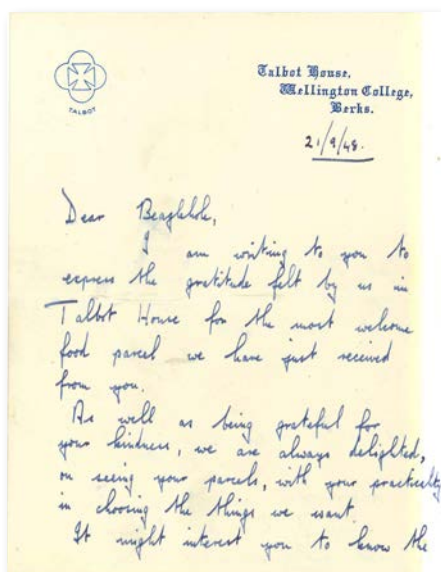 TALBOT
Talbot House,
Wellington College,
Berks.
21/9/48.
Dear Beaglehole,
I am writing to you to
express the gratitude felt by us in
Talbot House for the most welcome
food parcel we have just received
from you.
As well as being grateful for
your kindness, we are always delighted,
on seeing your parcels, with your practicality
in choosing the things we want.
It might interest you to know the